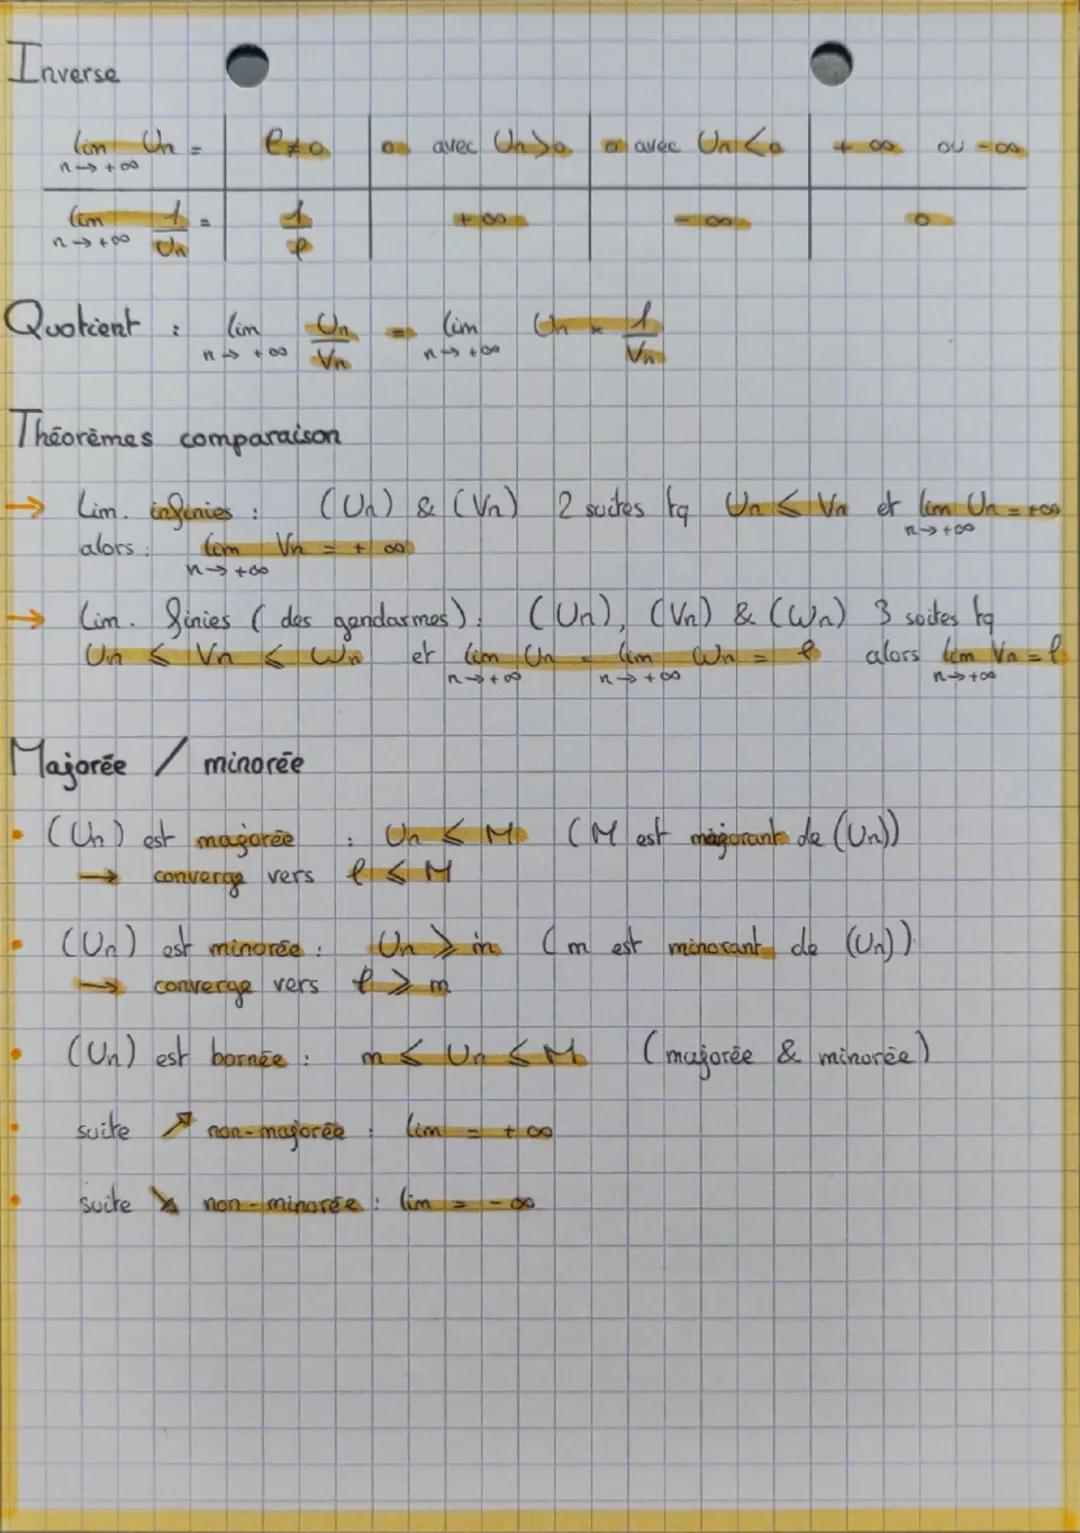 Inverse
lim Un = | ℓ≠0 | 0 avec Un>0 | 0 avec Un<0 | +∞ ou -∞
n→+∞
lim 1/Un = | 1/ℓ | +∞ | -∞ | 0
n→+∞
Quotient : lim Un/Vn = lim Un × 1/Vn
n→+∞ n→+∞
Théorèmes comparaison
→ Lim. infinies : (Un) & (Vn) 2 suites tq Un ≤ Vn et lim Un = +∞
n→+∞
alors : lim Vn = +∞
n→+∞
→ Lim. finies (des gendarmes) : (Un), (Vn) & (Wn) 3 suites tq
Un ≤ Vn ≤ Wn et lim Un = lim Wn = ℓ alors lim Vn = ℓ
n→+∞ n→+∞ n→+∞
Majorée / minorée
• (Un) est majorée : Un ≤ M (M est majorant de (Un))
→ converge vers ℓ ≤ M
• (Un) est minorée : Un ≥ m (m est minorant de (Un))
→ converge vers ℓ ≥ m
• (Un) est bornée : m ≤ Un ≤ M (majorée & minorée)
• suite ↗ non-majorée : lim = +∞
• suite ↘ non-minorée : lim = -∞